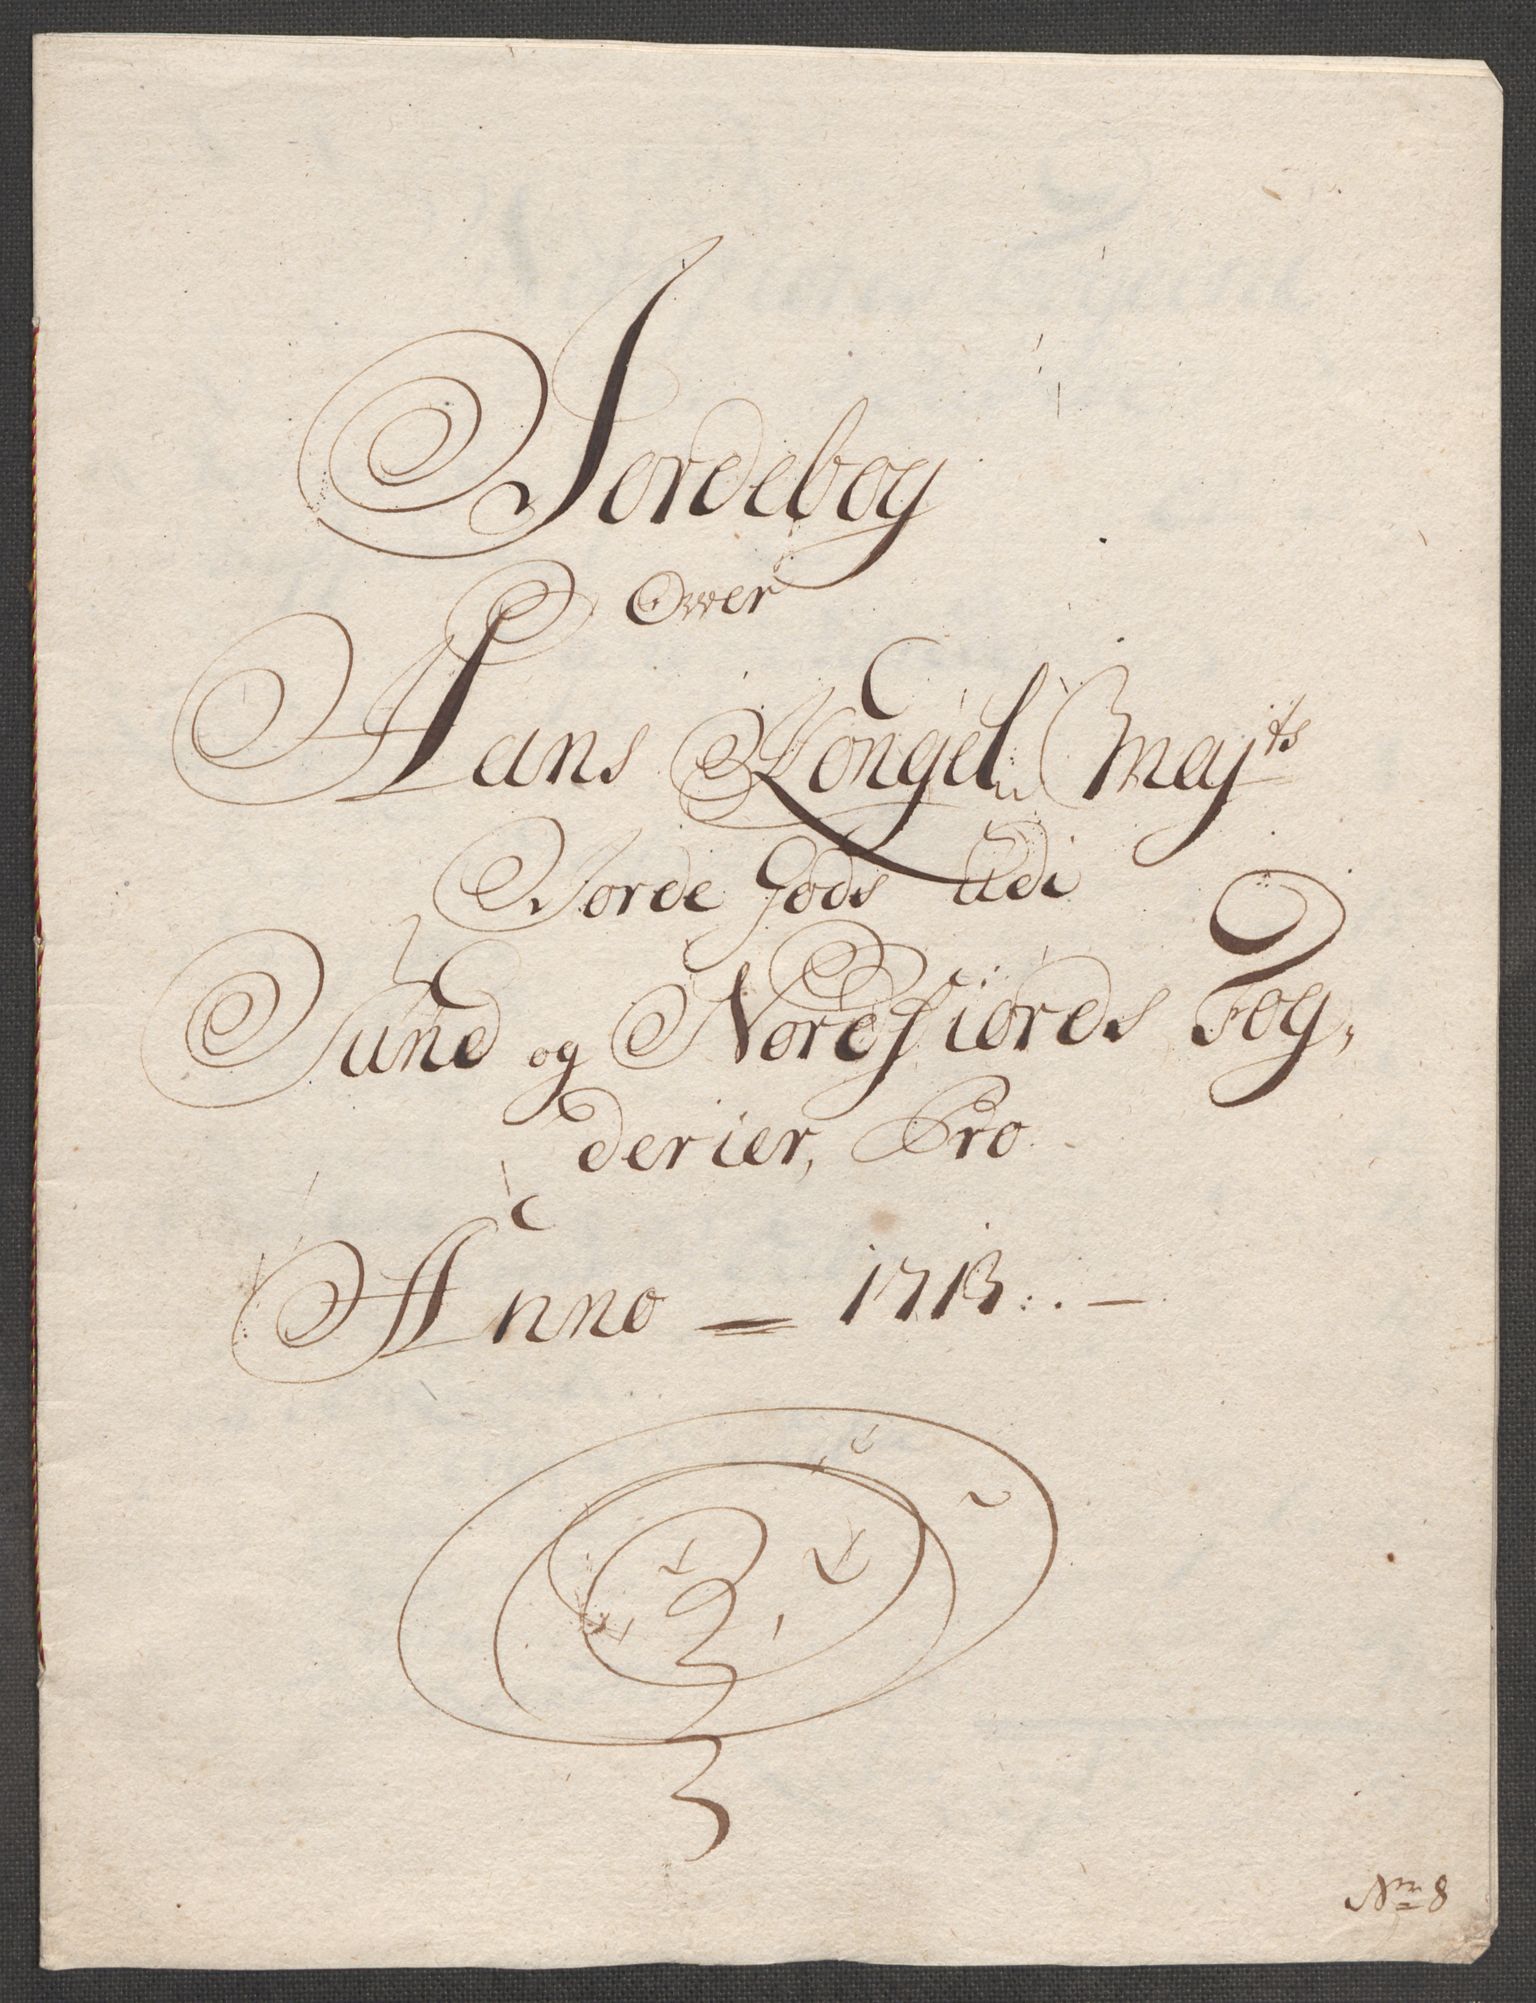 Jordebog
Over
Hans Kongel: Majts
Jorde Gods udi
Sund og Nordfiords Fog,
derier, Pro
Anno = 1713:. —
Nr 8